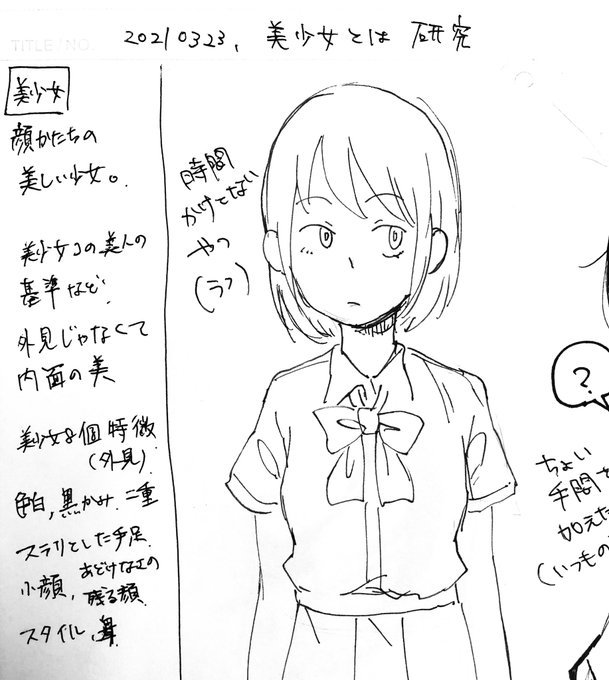 TITLE NO.
20210323. 美少女とは 研究
美少女
顔かたちの
美しい少女。
美少女の美人の
基準など
外見じゃなくて
内面の美
美少女8個特徴
(外見)
色白,黒かみ.二重
スラリとした手足.
小顔, あどけなさの
残る顔
スタイル,鼻
時間
かけてない
やつ
(ラフ)
?
ちょい
手間を
加えた
(いつもの